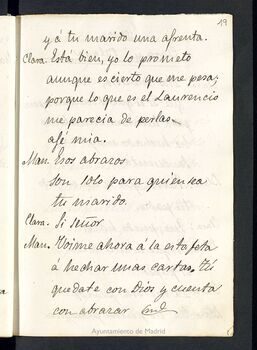 19
y á tu marido una afrenta.
Clara. Está bien, yo lo prometo
aunque es cierto que me pesa;
porque lo que es el Laurencio
me parecia de perlas
afé mia.
Man. Esos abrazos
son solo para quien sea
tu marido.
Clara. Si señor
Man. Voime ahora á la estafeta
á hechar unas cartas. Tú
quedate con Dios y cuenta
con abrazar
Ayuntamiento de Madrid